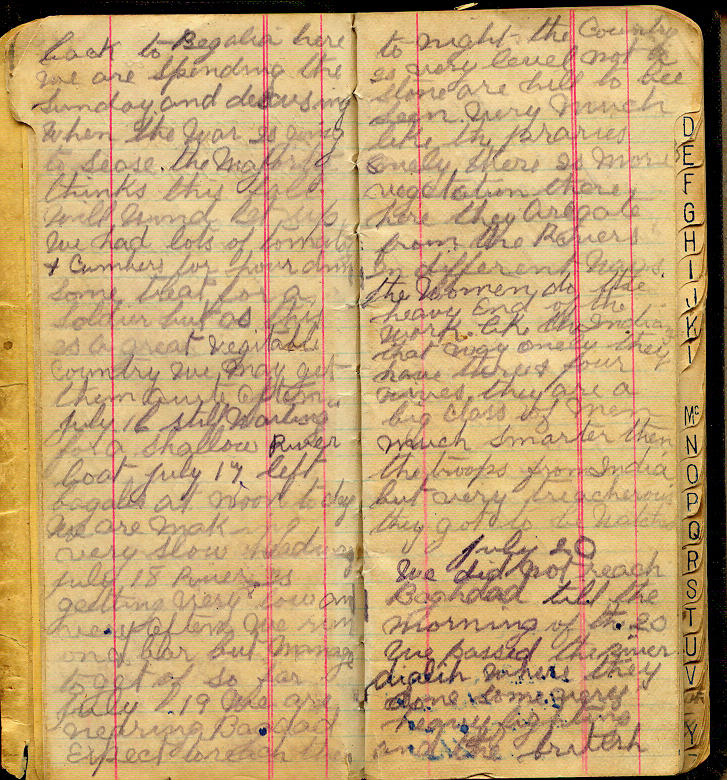 back to Begalia here
we are spending the
Sunday and discusing
when the War is going
to sease. the Majority
thinks this fall
will wind let up.
We had lots of tomatos
& Cumbers for four dinn
some treat for a
soldier but as this
is a great vegitable
Country we may get
them quite often.
July 16 still waiting
for a shallow River
boat July 17 left
bagalia at noon to day
We are making
very slow headway
July 18 River is
getting very low and
very often we run
on a bar but manage
to get of so far
July 19 We are
nedring Bagdad
Expect to reach there
to night the Country
is very level not a
stone are hill to bee
seen. Very much
like the praries
onely there is more
vegetation there
here they aregate
from the Rivers
in different ways.
the Women do the
heavy End of the
work. like the Indians
that way onely they
have three & four
wives. they are a
big class of men
much smarter then
the troops from India
but very treacherous
they got to be watched
July 20
We did not reach
Baghdad till the
morning of th 20
We passed the river
where they
done some very
heavy fighting
and the british
D
E
F
G
H
I
J
K
L
Mc
N
O
P
Q
R
S
T
U
V
Y